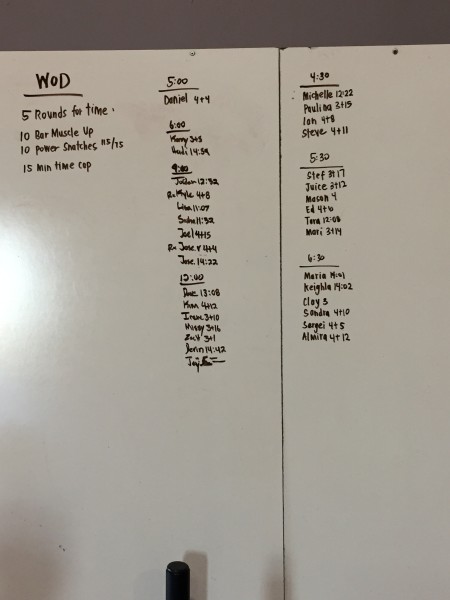 WOD
5 Rounds for time.
10 Bar Muscle Up
10 Power Snatches 115/75
15 min time cap
5:00
Daniel 4+4
6:00
3+3
14:59
9:00
12:32
Kyle 4+8
Lisa 11:07
11:52
Joel 4+15
Rx Jose. r 4+4
Jose. 14:22
12:00
13:08
Kim 4+12
Irene 3+10
Missy 3+16
3+1
Devin 14:42
4:30
Michelle 12:22
Paulina 3+15
Ian 4+8
Steve 4+11
5:30
Stef 3+17
Juice 3+12
Mason 4
Ed 4+6
Tara 12:08
Mari 3+14
6:30
Maria 14:01
Keighla 14:02
Clay 3
Sandra 4+10
Sergei 4+5
Almira 4+12